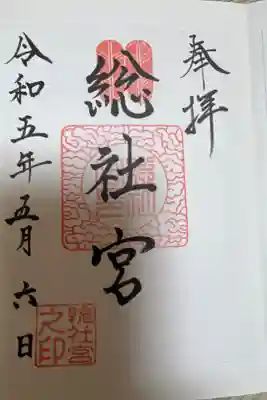 奉拝
総社宮
令和五年五月六日
総社宮之印